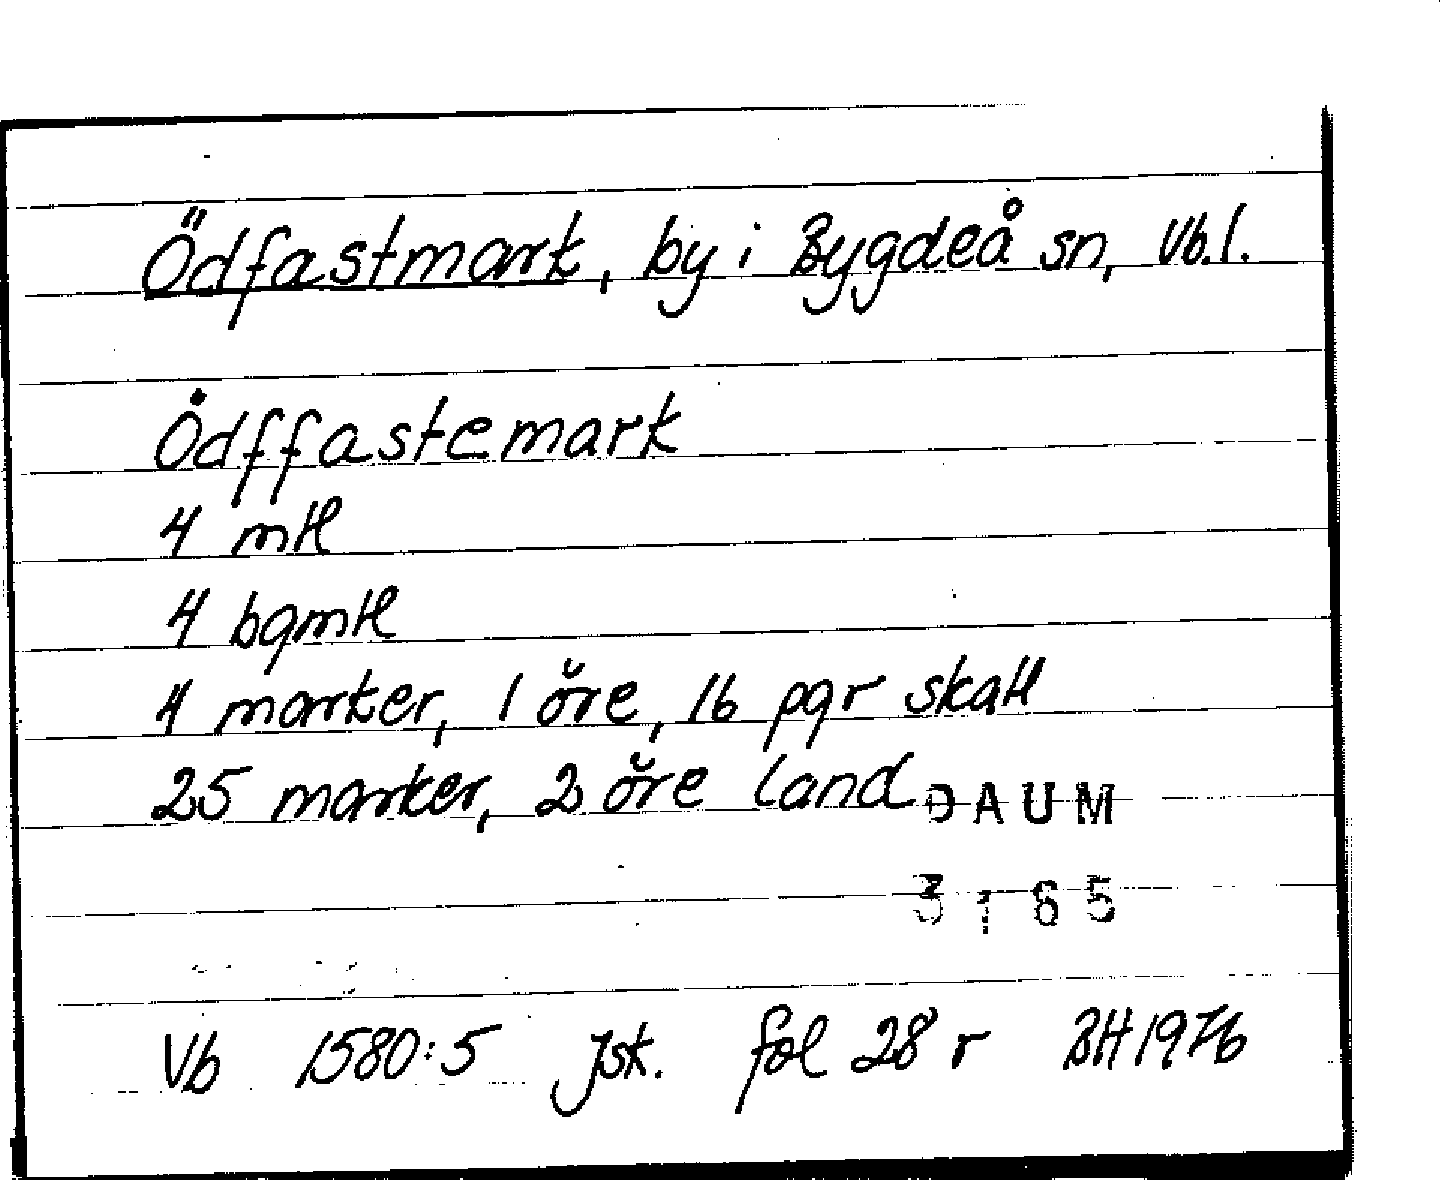 Ödfastmark, by i Bygdeå sn, Vb.l.
Ödffastemark
4 mtl
4 bgmtl
4 marker, 1 öre, 16 pgr skatt
25 marker, 2 öre land
DAUM
3165
Vb 1580:5 Jsk. fol 28 r BH 1976